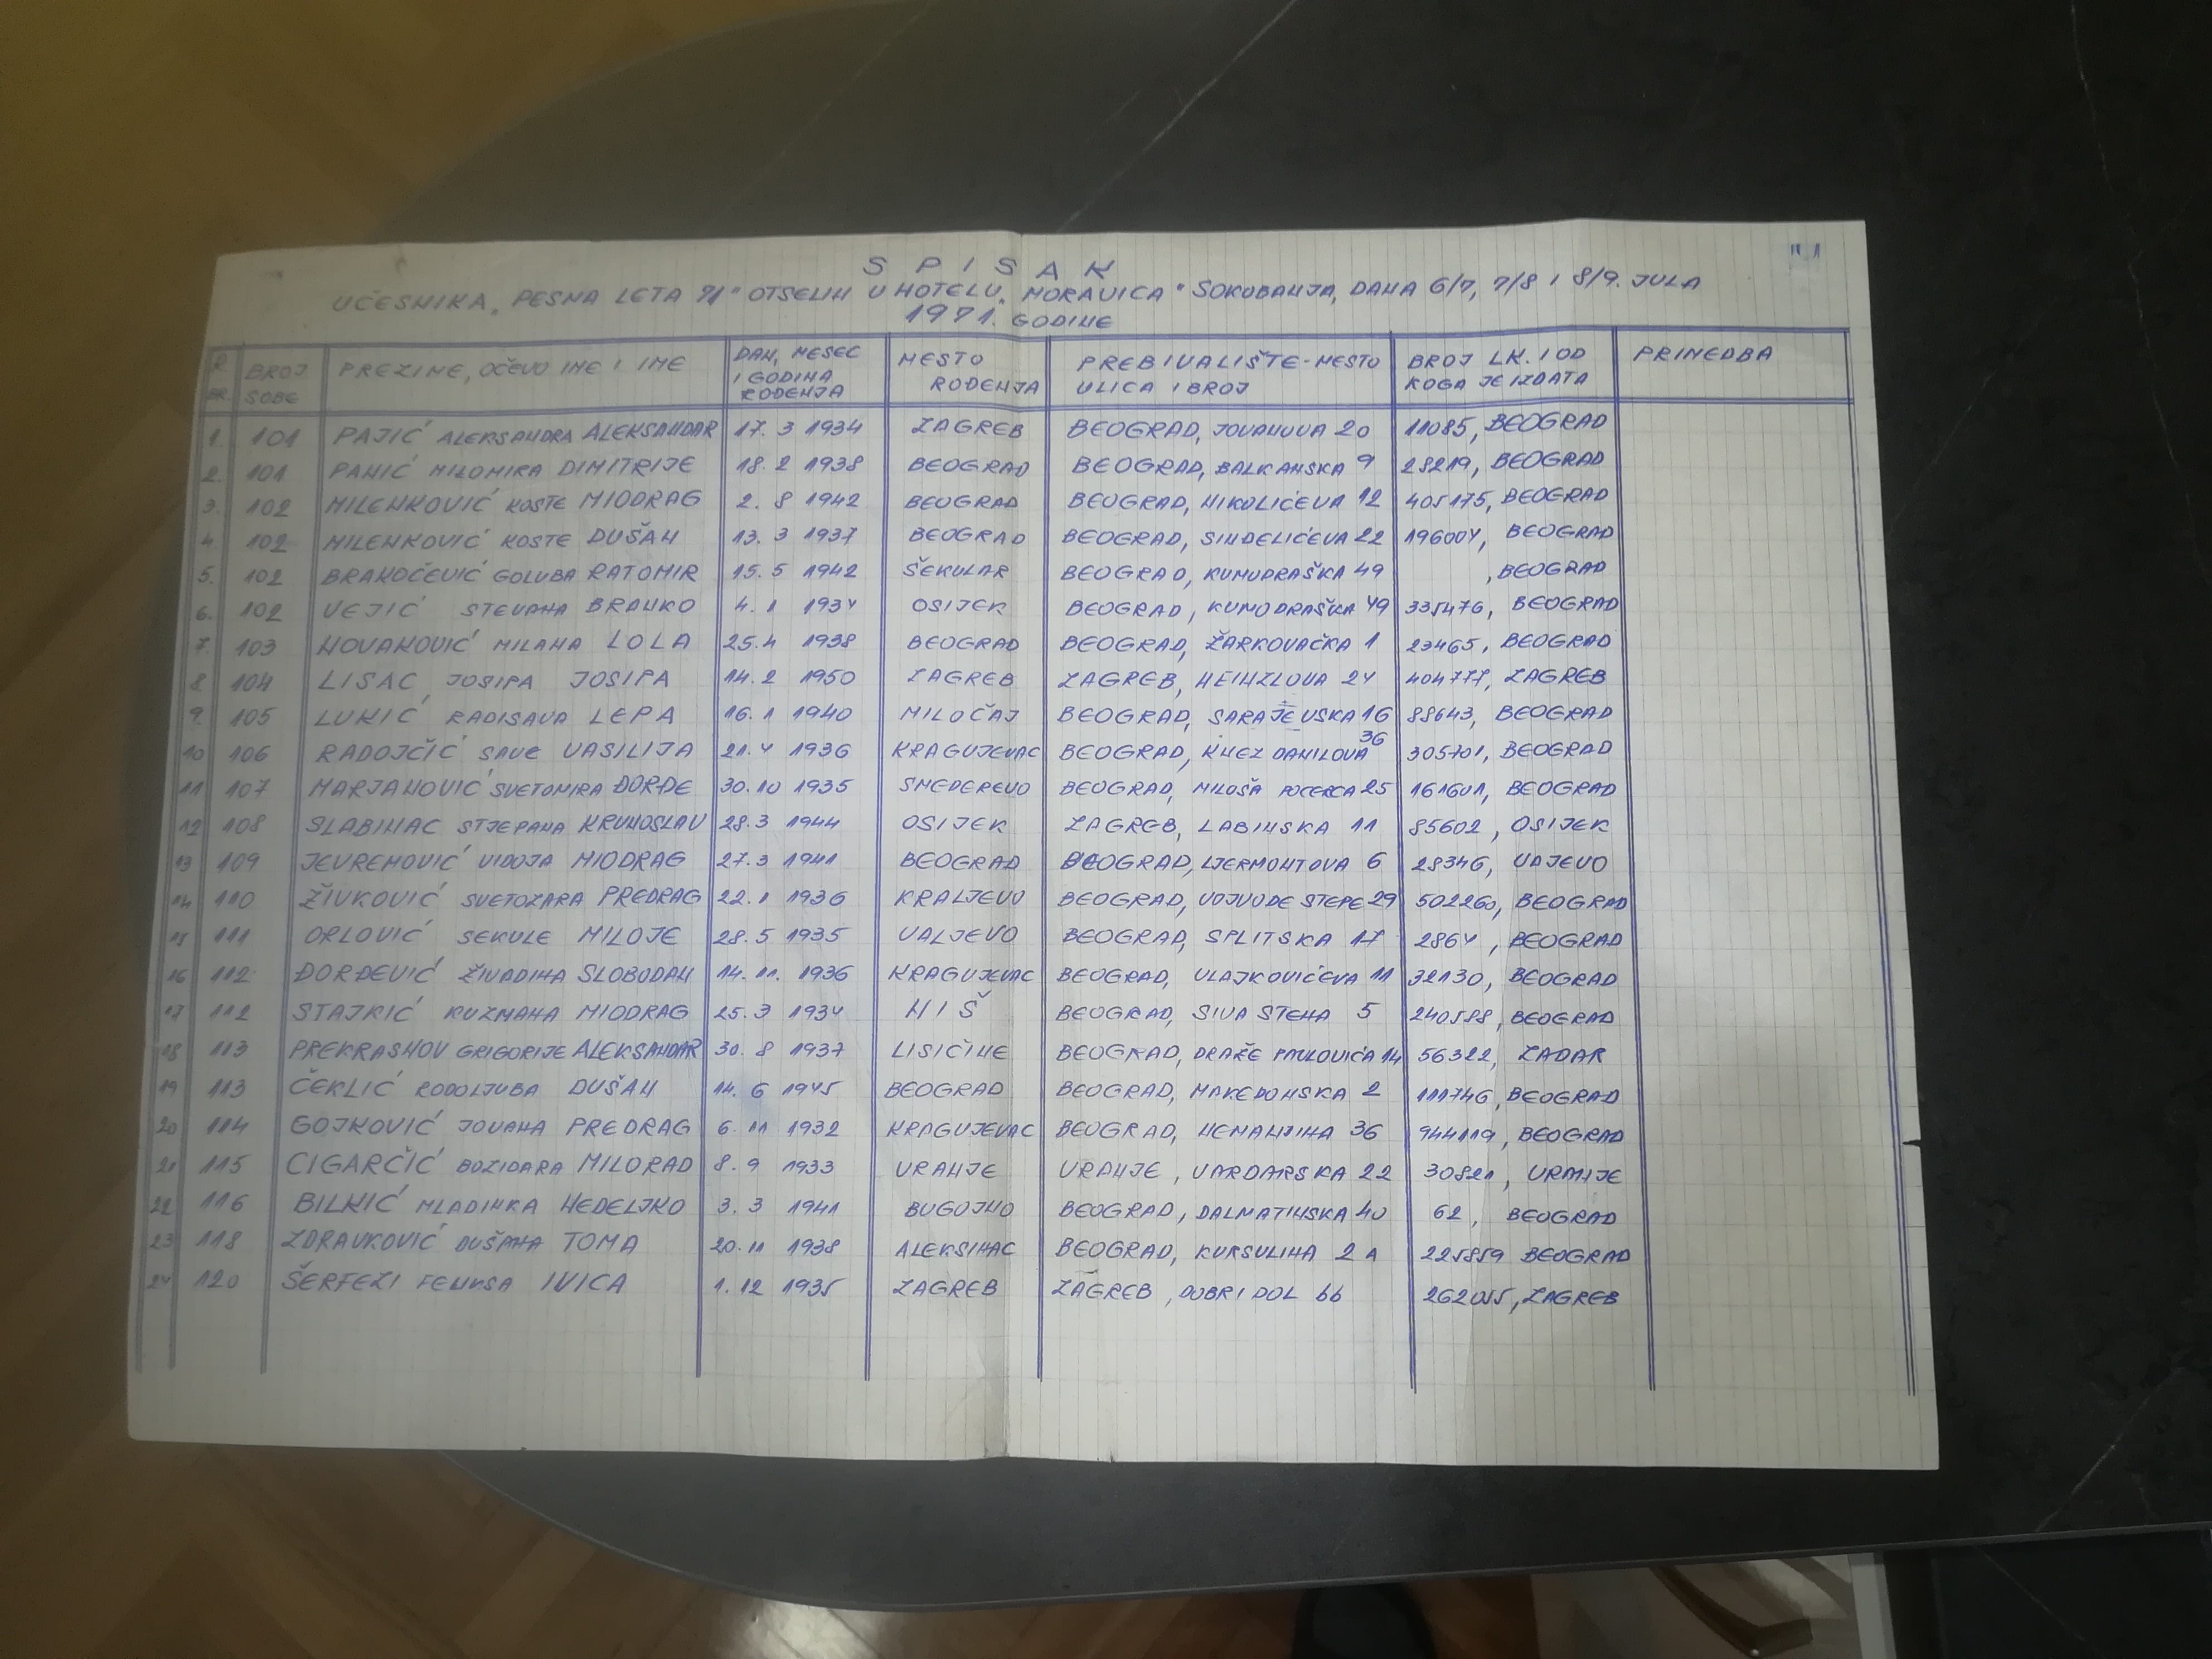 " 1
S P I S A K
UČESNIKA „PESMA LETA 71" OTSELIH U HOTELU „MORAVICA" SOKOBANJA, DANA 6/7, 7/8 I 8/9. JULA
1971. GODINE
R. BR. BROJ SOBE PREZIME, OČEVO IME I IME DAN, MESEC I GODINA ROĐENJA MESTO ROĐENJA PREBIVALIŠTE-MESTO ULICA I BROJ BROJ LK. I OD KOGA JE IZDATA PRIMEDBA
1. 101 PAJIĆ ALEKSANDRA ALEKSANDAR 17. 3 1934 ZAGREB BEOGRAD, JOVANOVA 20 11085, BEOGRAD
2. 101 PANIĆ MILOMIRA DIMITRIJE 18. 2 1938 BEOGRAD BEOGRAD, BALKANSKA 9 28219, BEOGRAD
3. 102 MILENKOVIĆ KOSTE MIODRAG 2. 8 1942 BEOGRAD BEOGRAD, NIKOLIĆEVA 12 405175, BEOGRAD
4. 102 MILENKOVIĆ KOSTE DUŠAN 13. 3 1937 BEOGRAD BEOGRAD, SINĐELIĆEVA 22 196004, BEOGRAD
5. 102 BRAKOČEVIĆ GOLUBA RATOMIR 15. 5 1942 ŠEKULAR BEOGRAD, KUMODRAŠKA 49 , BEOGRAD
6. 102 VEJIĆ STEVANA BRANKO 4. 1 1934 OSIJEK BEOGRAD, KUMODRAŠKA 49 335476, BEOGRAD
7. 103 NOVAKOVIĆ MILANA LOLA 25. 4 1938 BEOGRAD BEOGRAD, ŽARKOVAČKA 1 23465, BEOGRAD
8. 104 LISAC JOSIPA JOSIPA 14. 2 1950 ZAGREB ZAGREB, HEINZLOVA 24 404777, ZAGREB
9. 105 LUKIĆ RADISAVA LEPA 16. 1 1940 MILOČAJ BEOGRAD, SARAJEVSKA 16 88643, BEOGRAD
10 106 RADOJČIĆ SAVE VASILIJA 21. 4 1936 KRAGUJEVAC BEOGRAD, KNEZ DANILOVA 36 305701, BEOGRAD
11 107 MARJANOVIĆ SVETOMIRA ĐORĐE 30. 10 1935 SMEDEREVO BEOGRAD, MILOŠA POCERCA 25 161601, BEOGRAD
12 108 SLABINAC STJEPANA KRUNOSLAV 28. 3 1944 OSIJEK ZAGREB, LABINSKA 11 85602, OSIJEK
13 109 JEVREMOVIĆ VIDOJA MIODRAG 27. 3 1941 BEOGRAD BEOGRAD, LJERMONTOVA 6 28346, VAJEVO
14 110 ŽIVKOVIĆ SVETOZARA PREDRAG 22. 1 1936 KRALJEVO BEOGRAD, VOJVODE STEPE 29 502260, BEOGRAD
15 111 ORLOVIĆ SEKULE MILOJE 28. 5 1935 VALJEVO BEOGRAD, SPLITSKA 17 2864, BEOGRAD
16 112 ĐORĐEVIĆ ŽIVADINA SLOBODAN 14. 11. 1936 KRAGUJEVAC BEOGRAD, VLAJKOVIĆEVA 11 32130, BEOGRAD
17 112 STAJKIĆ KUZMANA MIODRAG 25. 3 1934 NIŠ BEOGRAD, SIVA STENA 5 240588, BEOGRAD
18 113 PREKRASNOV GRIGORIJE ALEKSANDAR 30. 8 1937 LISIČINE BEOGRAD, DRAŽE PAVLOVIĆA 14 56322, ZADAR
19 113 ČEKLIĆ RODOLJUBA DUŠAN 14. 6 1945 BEOGRAD BEOGRAD, MAKEDONSKA 2 111746, BEOGRAD
20 114 GOJKOVIĆ JOVANA PREDRAG 6. 11 1932 KRAGUJEVAC BEOGRAD, NEMANJINA 36 944119, BEOGRAD
21 115 CIGARČIĆ BOZIDARA MILORAD 8. 9 1933 VRANJE VRANJE, VARDARSKA 22 30821, VRANJE
22 116 BILKIĆ MLADINKA NEDELJKO 3. 3 1941 BUGOJNO BEOGRAD, DALMATINSKA 40 62, BEOGRAD
23 118 ZDRAVKOVIĆ DUŠANA TOMA 20. 11 1938 ALEKSINAC BEOGRAD, KURSULINA 2 A 225859 BEOGRAD
24 120 ŠERFEZI FELIKSA IVICA 1. 12 1935 ZAGREB ZAGREB, DOBRI DOL 66 262055, ZAGREB